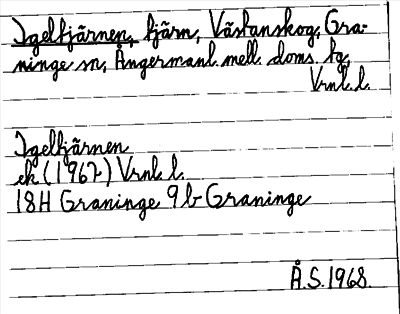 Igeltjärnen, tjärn, Västanskog, Gra-
ninge sn, Ångermanl. mell. doms. tg,
Vrnl. l.
Igeltjärnen
ek (1967) Vrnl. l.
18H Graninge 9b Graninge
Å.S. 1968.